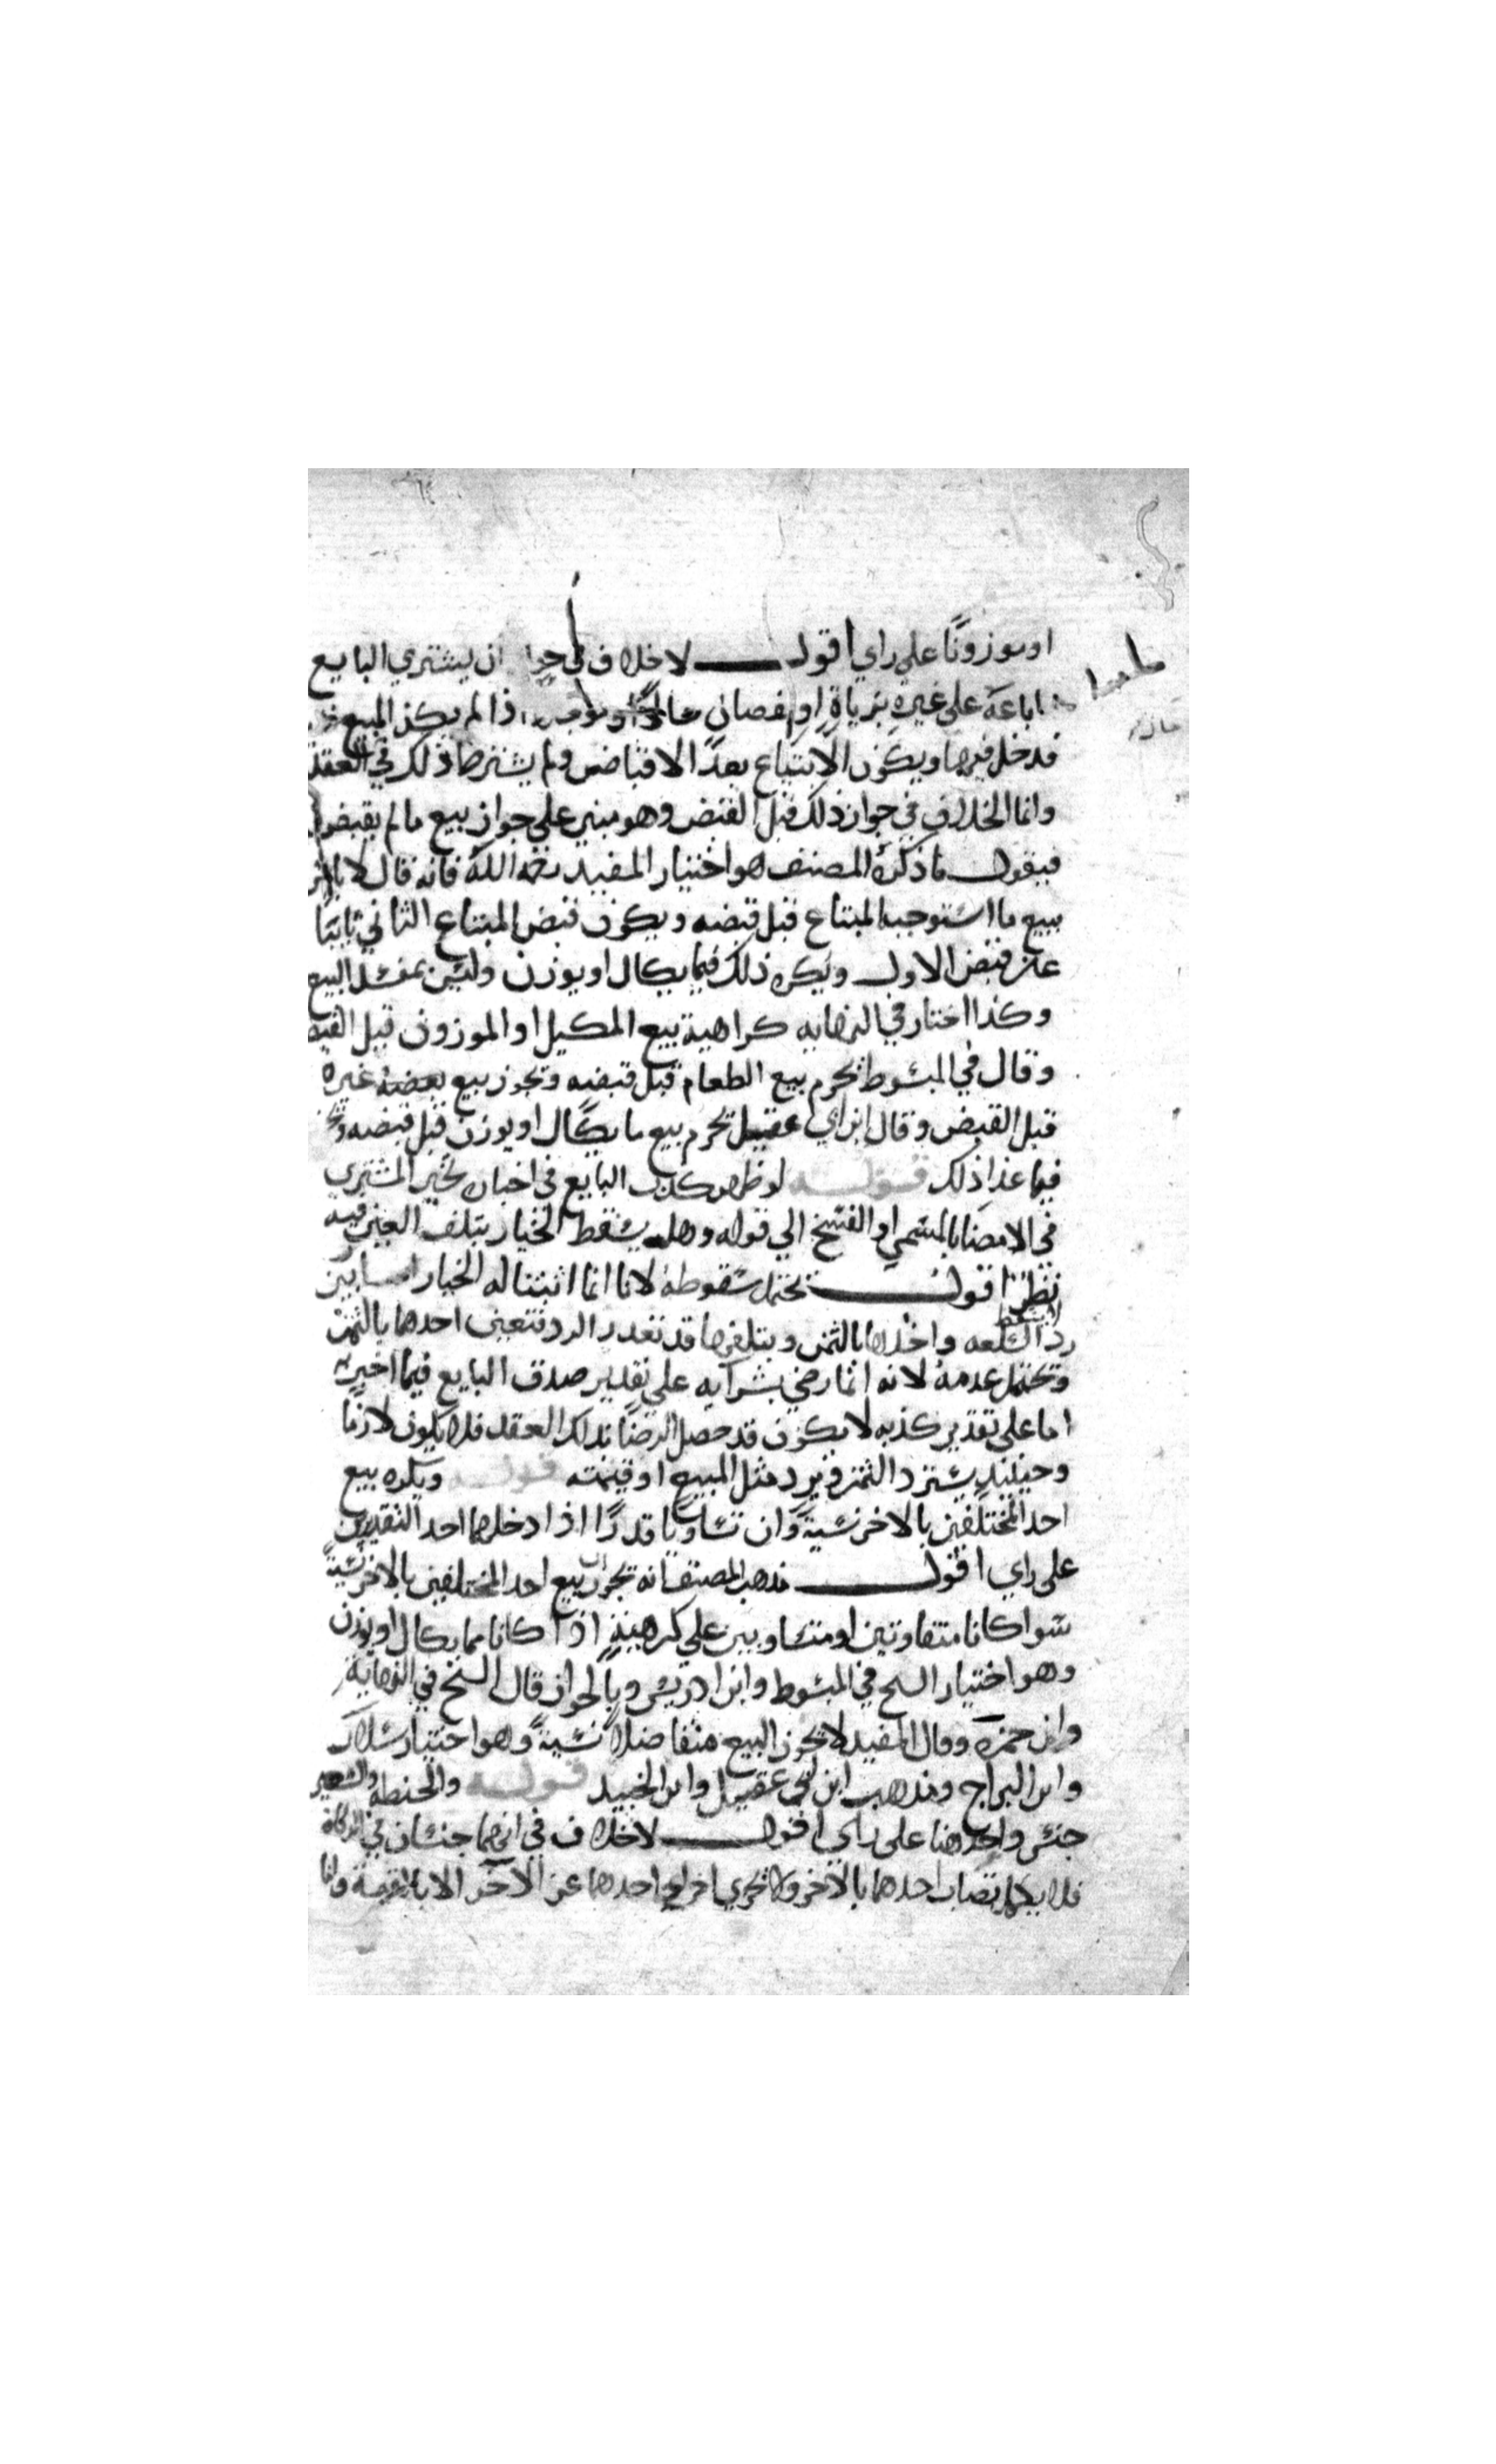 او موزونًا على راي اقول لا خلاف في جواز ان يشتري البايع
اباعه على غيره بزيادة او نقصان حالا اذا لم يكن المبيع
قد دخل فيها ويكون الابتياع بعد الاقباض ولم يشترطا ذلك في العقد
وانما الخلاف في جواز ذلك قبل القبض وهو مبني على جواز بيع ما لم يقبض
فيقول ما ذكره المصنف هو اختيار المفيد رحمه الله فانه قال لا باس
ببيع ما استوجبه المبتاع قبل قبضه ويكون قبض المبتاع الثاني ثابتا
عن قبض الاول ويكره ذلك فيما يكال او يوزن وليس بمفسد البيع
وكذا اختار في النهايه كراهية بيع المكيل او الموزون قبل القبض
وقال في المبسوط يحرم بيع الطعام قبل قبضه وتجوز بيع غيره
قبل القبض وقال ابن ابي عقيل يحرم بيع ما يكال او يوزن قبل قبضه
فيما عدا ذلك قوله لو ظهر كذب البايع في اخباره تخير المشتري
في الامضا بالمسمي او الفسخ الي قوله وهل يسقط الخيار بتلف العين فيه
نظر اقول يحتمل سقوطه لانا انما اثبتنا له الخيار بين
رد السلعه واخذها بالثمن وبتلفها قد تعذر الرد فتعين احدهما بالثمن
وتحتمل عدمه لانه انما رضي بشرآيه على تقدير صدق البايع فيما اخبر به
اما على تقدير كذبه لا يكون قد حصل الرضا بذلك العقد فلا يكون لازما
وحينئذ يسترد الثمن ويرد مثل المبيع او قيمته قوله ويكره بيع
احد المختلفين بالاخر نسية وان تساويا قدرًا اذا دخلهما احد التقديرين
على راي اقول مذهب المصنف انه يجوز بيع احد المختلفين بالاخر نسية
سوا كانا متفاوتين او متساويين على كرهية اذا كانا مما يكال او يوزن
وهو اختيار الشيخ في المبسوط وابن ادريس وبالجواز قال الشيخ في النهاية
وابن حمزه وقال المفيد لا تجوز البيع متفاضلا نسية وهو اختيار سلار
وابن البراج ومذهب ابن ابي عقيل وابن الجنيد قوله والحنطه والشعير
جنس واحد هنا على راي اقول لا خلاف في انهما جنسان في الزكاة
فلا يكمل نصاب احدهما بالاخر ولا تجزي اخراج احدهما عن الاخر الا بالقيمة وانما